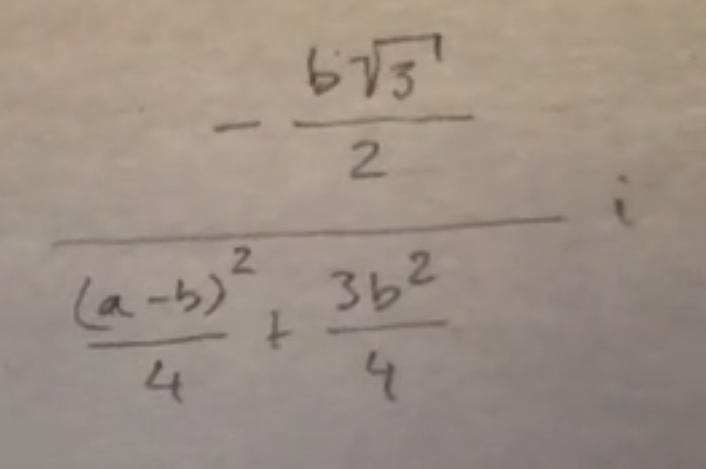 \frac{-\frac{b\sqrt{3}}{2}}{\frac{(a-b)^2}{4}+\frac{3b^2}{4}} i